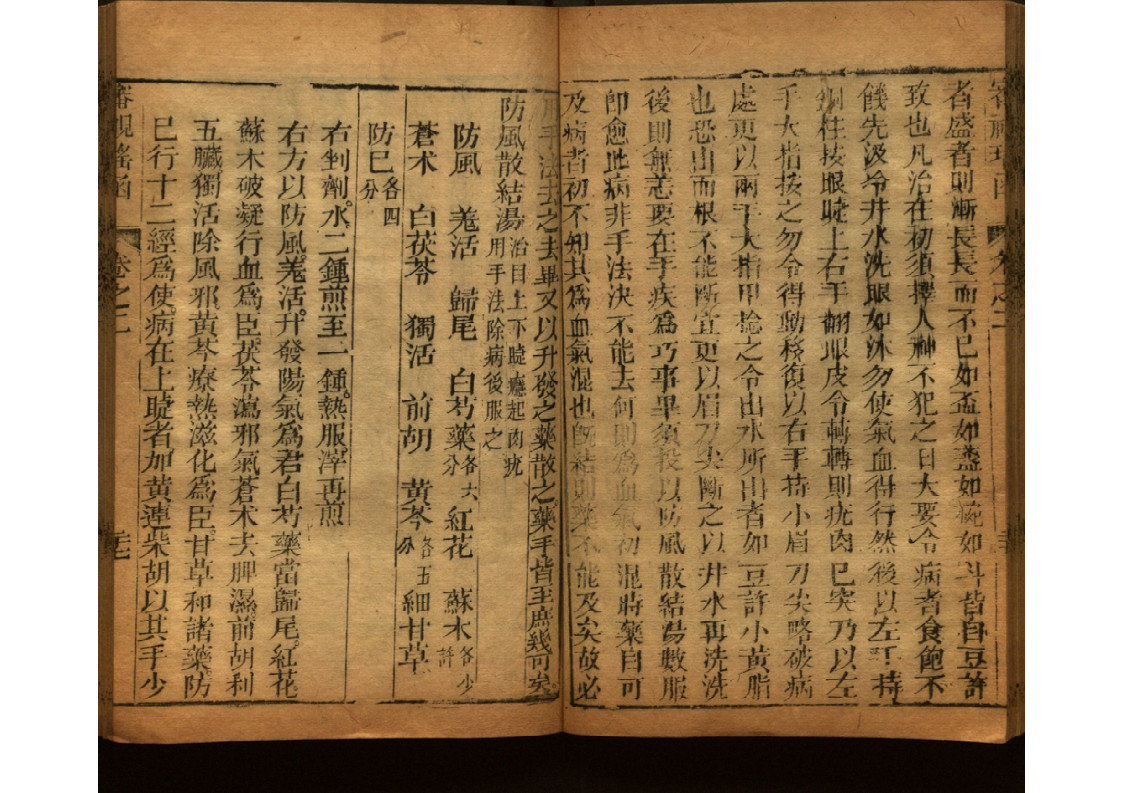 者盛者則漸長長而不已如盃如盞如碗如斗皆自豆許
致也凡治在初須擇人神不犯之日大要令病者食飽不
饑先汲冷井水洗眼如沐勿使氣血得行然後以左手持
銅柱按眼睫上右手翻眼皮令轉轉則疣肉已突乃以左
手大指按之勿令得動移復以右手持小眉刀尖略破病
處更以兩手大指甲捻之令出水所出者如豆許小黃脂
也恐出而根不能斷宜更以眉刀尖斷之以井水再洗洗
後則無恙要在手疾為巧事畢須投以防風散結湯數服
即愈此病非手法決不能去何則為血氣初混時藥自可
及病者初不知其為血氣混也旣結則藥不能及矣故必
用手法去之去畢又以升發之藥散之藥手皆至庶幾可矣
防風散結湯 治目上下睫癮起肉疣
用手法除病後服之
防風 羌活 歸尾 白芍藥各六分 紅花 蘇木各少許
蒼术 白茯苓 獨活 前胡 黃芩各五分 細甘草
防已各四分
右剉劑水二鍾煎至一鍾熱服滓再煎
右方以防風羌活升發陽氣為君白芍藥當歸尾紅花
蘇木破凝行血為臣茯苓瀉邪氣蒼术去脾濕前胡利
五臟獨活除風邪黃芩療熱滋化為臣甘草和諸藥防
已行十二經爲使病在上睫者加黃連柴胡以其手少
審視瑤函 卷之二